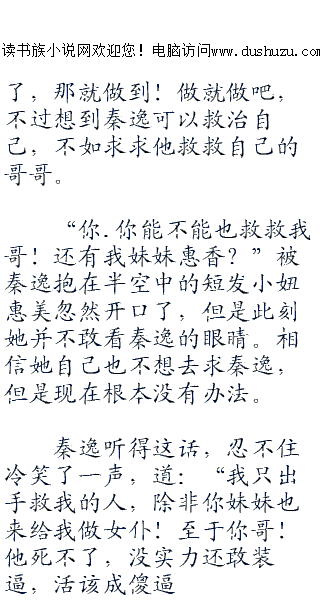 读书族小说网欢迎您！电脑访问www.dushuzu.com
了，那就做到！做就做吧，
不过想到秦逸可以救治自
己，不如求求他救救自己的
哥哥。
“你.你能不能也救救我
哥！还有我妹妹惠香？”被
秦逸抱在半空中的短发小妞
惠美忽然开口了，但是此刻
她并不敢看秦逸的眼睛。相
信她自己也不想去求秦逸，
但是现在根本没有办法。
秦逸听得这话，忍不住
冷笑了一声，道：“我只出
手救我的人，除非你妹妹也
来给我做女仆！至于你哥！
他死不了，没实力还敢装
逼，活该成傻逼